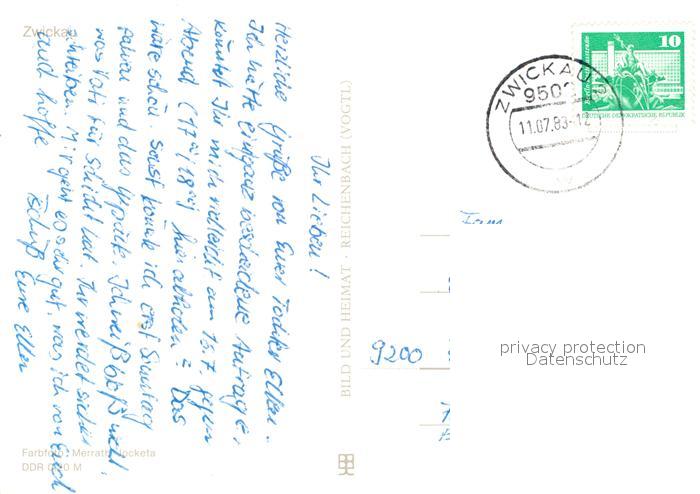 Zwickau
Ihr Lieben!
Herzliche Grüße von Eurer Tochter Ellen.
Ich hätte ein ganz bescheidene Anfrage,
könntet Ihr mich vielleicht am 16.7. gegen
Abend (17⁰⁰/18⁰⁰) hier abholen? Das
wäre schön. Sonst könnte ich erst Sonntag
fahren und das Gepäck. Ich weiß bloß nicht,
was Vati für Schicht hat. Ihr werdet sicher
schreiben. Mir geht es sehr gut, was ich von Euch
auch hoffe. Tschüß Eure Ellen
Farbfoto: Merrath, Jocketa
DDR 0,20 M
BILD UND HEIMAT · REICHENBACH (VOGTL)
10
DEUTSCHE DEMOKRATISCHE REPUBLIK
ZWICKAU
950
11.07.83-12
Fam
9200
privacy protection
Datenschutz